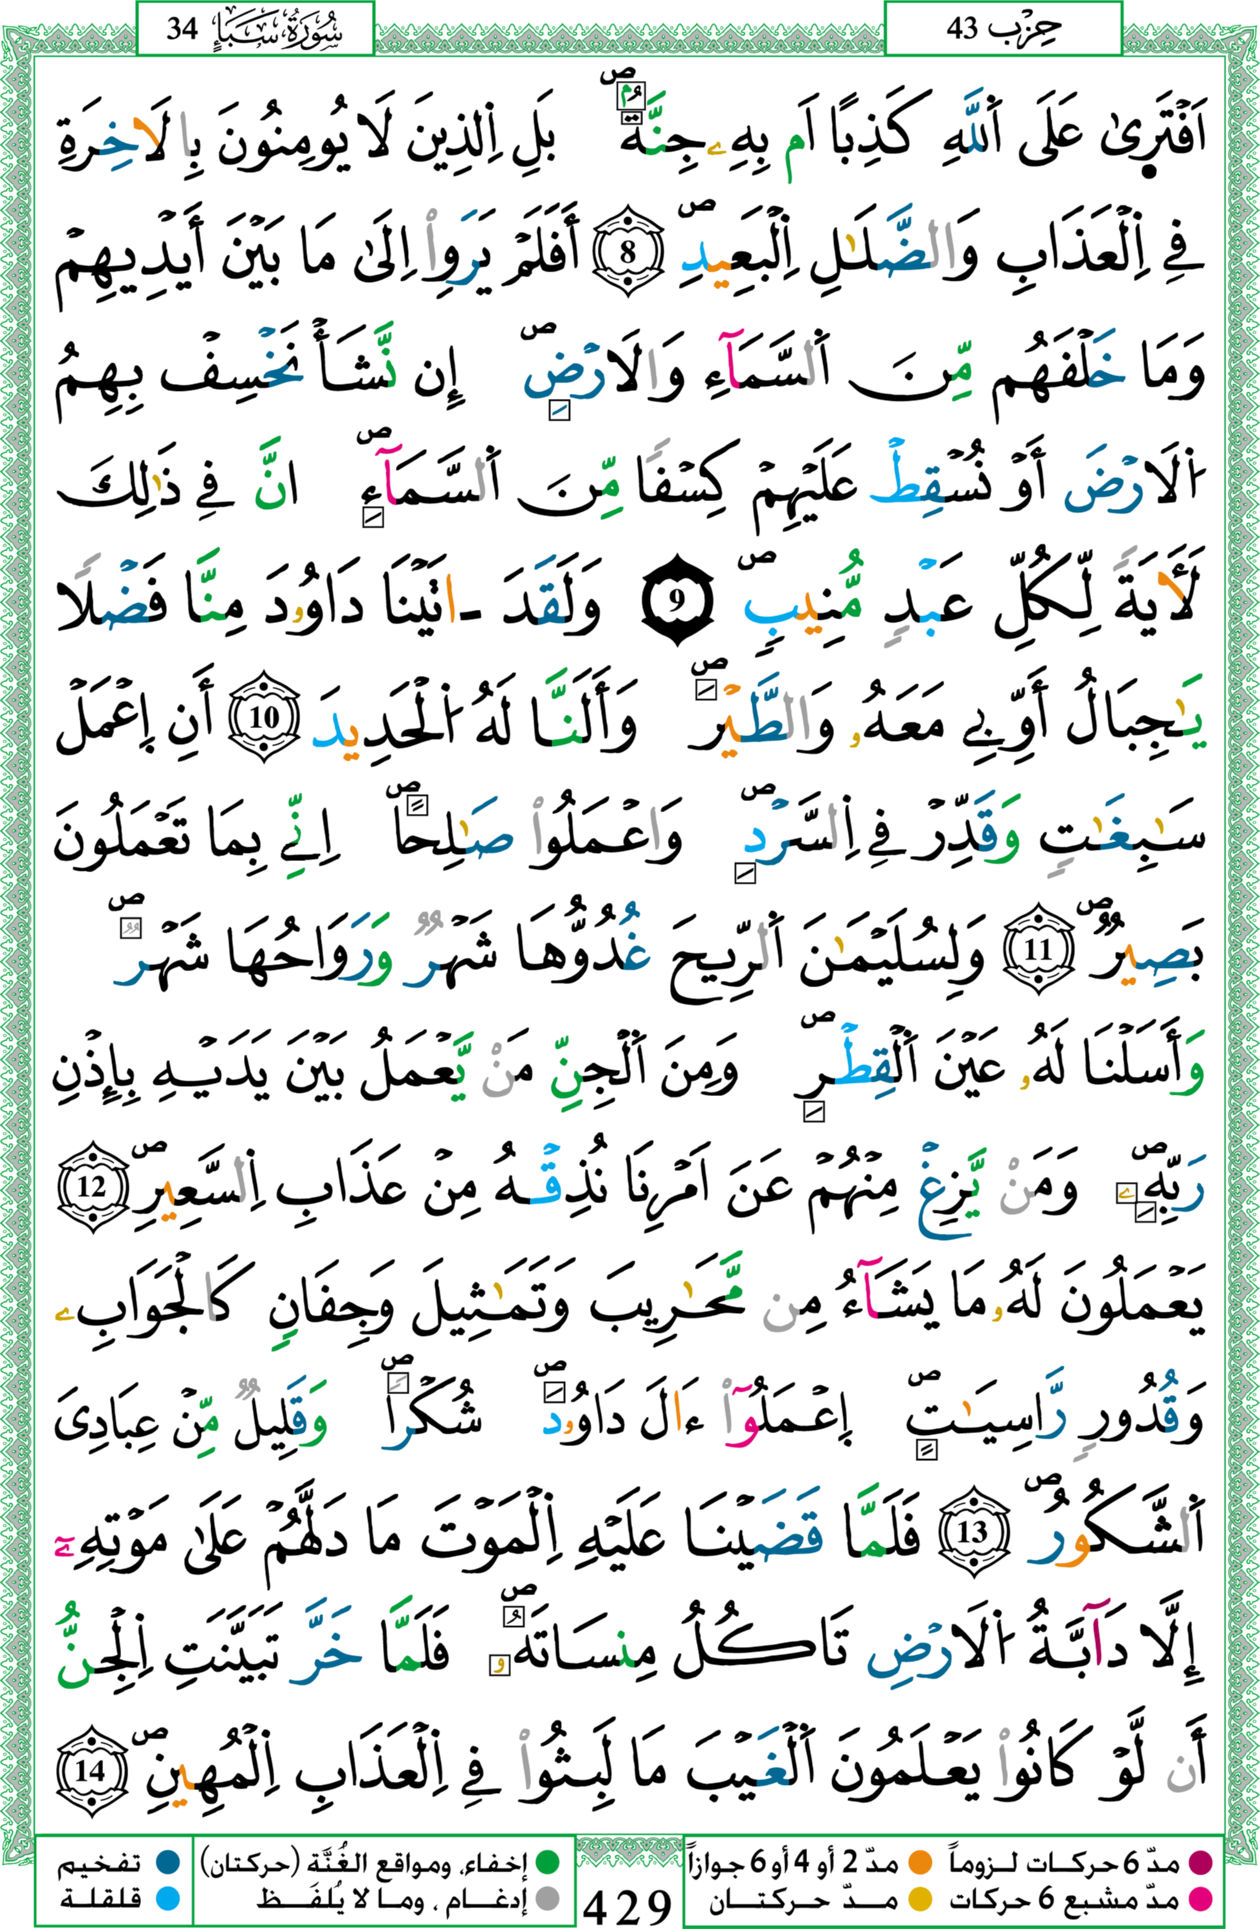 حِزْب 43
سُورَةُ سَبَإٍ 34
اَفْتَرٜىٰ عَلَى اَ۬للَّهِ كَذِبًا اَم بِهِۦ جِنَّةُۢۖ بَلِ اِ۬لذِينَ لَا يُومِنُونَ بِالَاخِرَةِ
فِے اِ۬لْعَذَابِ وَالضَّلَٰلِ اِ۬لْبَعِيدِۖ 8 أَفَلَمْ يَرَوِاْ اِلَىٰ مَا بَيْنَ أَيْدِيهِمْ
وَمَا خَلْفَهُم مِّنَ اَ۬لسَّمَآءِ وَالَارْضِۖ إِن نَّشَأْ نَخْسِفْ بِهِمُ
اُ۬لَارْضَ أَوْ نُسْقِطْ عَلَيْهِمْ كِسْفًا مِّنَ اَ۬لسَّمَآءِۖ انَّ فِے ذَٰلِكَ
لَأٓيَةً لِّكُلِّ عَبْدٍ مُّنِيبٍۖ 9 وَلَقَدَ اٰتَيْنَا دَاوُۥدَ مِنَّا فَضْلًا
يَٰجِبَالُ أَوِّبِے مَعَهُۥ وَالطَّيْرَۖ وَأَلَنَّا لَهُ اُ۬لْحَدِيدَ 10 أَنِ اِ۪عْمَلْ
سَٰبِغَٰتٍ وَقَدِّرْ فِے اِ۬لسَّرْدِۖ وَاعْمَلُواْ صَٰلِحاًۖ اِنِّے بِمَا تَعْمَلُونَ
بَصِيرٌۖ 11 وَلِسُلَيْمَٰنَ اَ۬لرِّيحَ غُدُوُّهَا شَهْرٌ وَرَوَاحُهَا شَهْرٌۖ
وَأَسَلْنَا لَهُۥ عَيْنَ اَ۬لْقِطْرِۖ وَمِنَ اَ۬لْجِنِّ مَنْ يَّعْمَلُ بَيْنَ يَدَيْهِ بِإِذْنِ
رَبِّهِۦۖ وَمَنْ يَّزِغْ مِنْهُمْ عَنَ اَمْرِنَا نُذِقْهُ مِنْ عَذَابِ اِ۬لسَّعِيرِۖ 12
يَعْمَلُونَ لَهُۥ مَا يَشَآءُ مِن مَّحَٰرِيبَ وَتَمَٰثِيلَ وَجِفَانٍ كَالْجَوَابِۦ
وَقُدُورٍ رَّاسِيَٰتٍۖ اِ۪عْمَلُوٓاْ ءَالَ دَاوُۥدَۖ شُكْراًۖ وَقَلِيلٌ مِّنْ عِبَادِىَ
اَ۬لشَّكُورُۖ 13 فَلَمَّا قَضَيْنَا عَلَيْهِ اِ۬لْمَوْتَ مَا دَلَّهُمْ عَلَىٰ مَوْتِهِۦٓ
إِلَّا دَآبَّةُ اُ۬لَارْضِ تَاكُلُ مِنسَاتَهُۥۖ فَلَمَّا خَرَّ تَبَيَّنَتِ اِ۬لْجِنُّ
أَن لَّوْ كَانُواْ يَعْلَمُونَ اَ۬لْغَيْبَ مَا لَبِثُواْ فِے اِ۬لْعَذَابِ اِ۬لْمُهِينِۖ 14
مدّ 6 حركات لـزوماً مدّ 2 أو 4 أو 6 جوازاً إخفاء، ومواقع الغُنَّة (حركتان) تفخيم
مدّ مشبع 6 حركات مـدّ حركتـان إدغام ، وما لا يُلفَـظ قلقلة
429